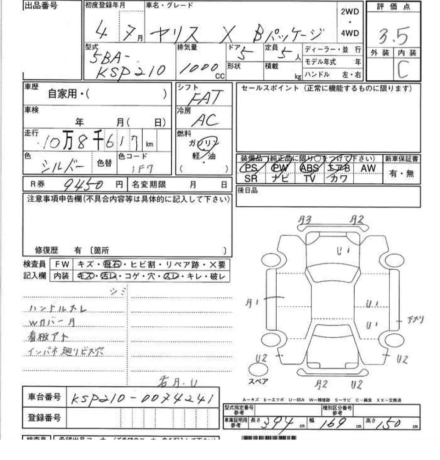 出品番号 初度登録年月 車名・グレード 2WD 評価点
4年7月 ヤリス X Bパッケージ ・4WD 3.5
型式 排気量 ドア 定員 ディーラー・並行 外装 内装
5BA-KSP210 1000cc 5 5人 モデル年式 年 C
形状 積載 kg ハンドル 左・右
車歴 自家用・( ) シフト FAT セールスポイント(正常に機能するものに限ります)
車検 年 月( 日) 冷房 AC
走行 10万8千617km 燃料 ガソリン
軽・油
色 シルバー 色替 色コード 1F7
装備品(純正品に限り○をつけて下さい) 新車保証書
PS PW ABS エアB AW 有・無
SR ナビ TV カワ
R券 9450円 名変期限 月 日
後日品
注意事項申告欄(不具合内容等は具体的に記入して下さい)
修復歴 有 [箇所 )
検査員 FW キズ・飛石・ヒビ割・リペア跡・×要
記入欄 内装 キズ・汚れ・コゲ・穴・スレ・キレ・破レ
シミ
ハンドルスレ
Wカバー
インパネ廻りビス穴
A3 A2
U1
A1 U1
U1
U2 U2
A2 U2
スペア
車台番号 KSP210-0074241
登録番号
型式指定番号 類別区分番号
参考 参考
長さ 394cm 幅 169cm 高さ 150cm